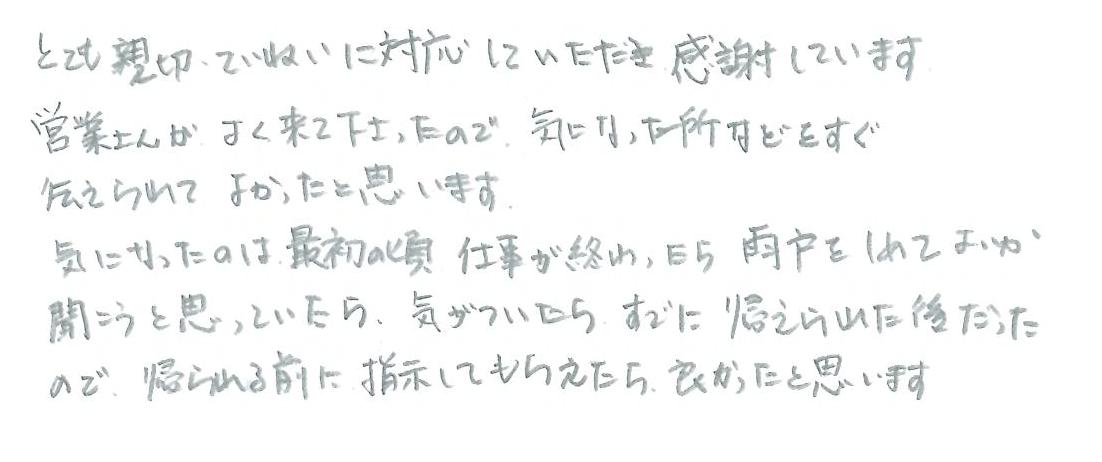 とても親切、ていねいに対応していただき感謝しています
営業さんが よく来て下さったので、気になった所などをすぐ
伝えられて よかったと思います。
気になったのは最初の頃 仕事が終わったら 雨戸をしめてよいか
聞こうと思っていたら、気がついたら すでに 帰えられた後だった
ので、帰られる前に 指示してもらえたら、良かったと思います